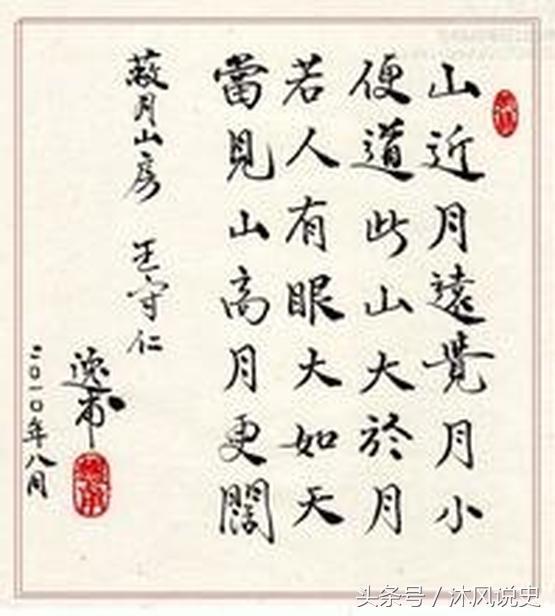 山近月遠覺月小
便道此山大於月
若人有眼大如天
當見山高月更闊
蔽月山房 王守仁
逸甫
二〇一〇年八月
头条号/沐风说史